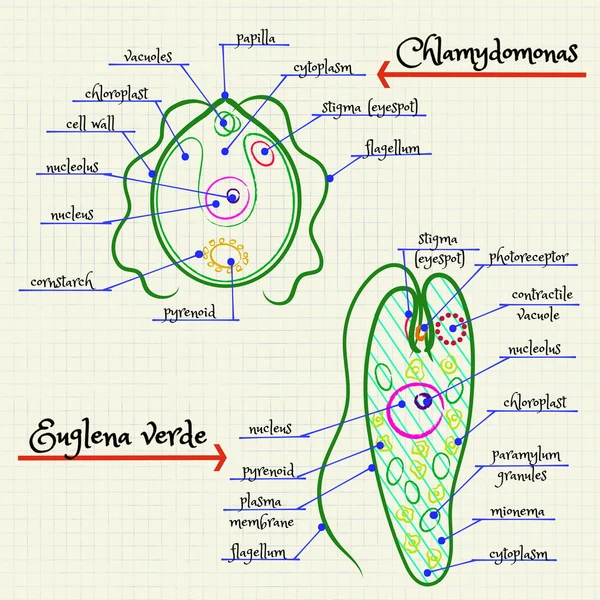 papilla
Chlamydomonas
vacuoles
cytoplasm
chloroplast
stigma (eyespot)
cell wall
flagellum
nucleolus
nucleus
cornstarch
pyrenoid
stigma
(eyespot)
photoreceptor
contractile
vacuole
nucleolus
chloroplast
Euglena verde
nucleus
paramylum
granules
pyrenoid
plasma
membrane
mionema
flagellum
cytoplasm